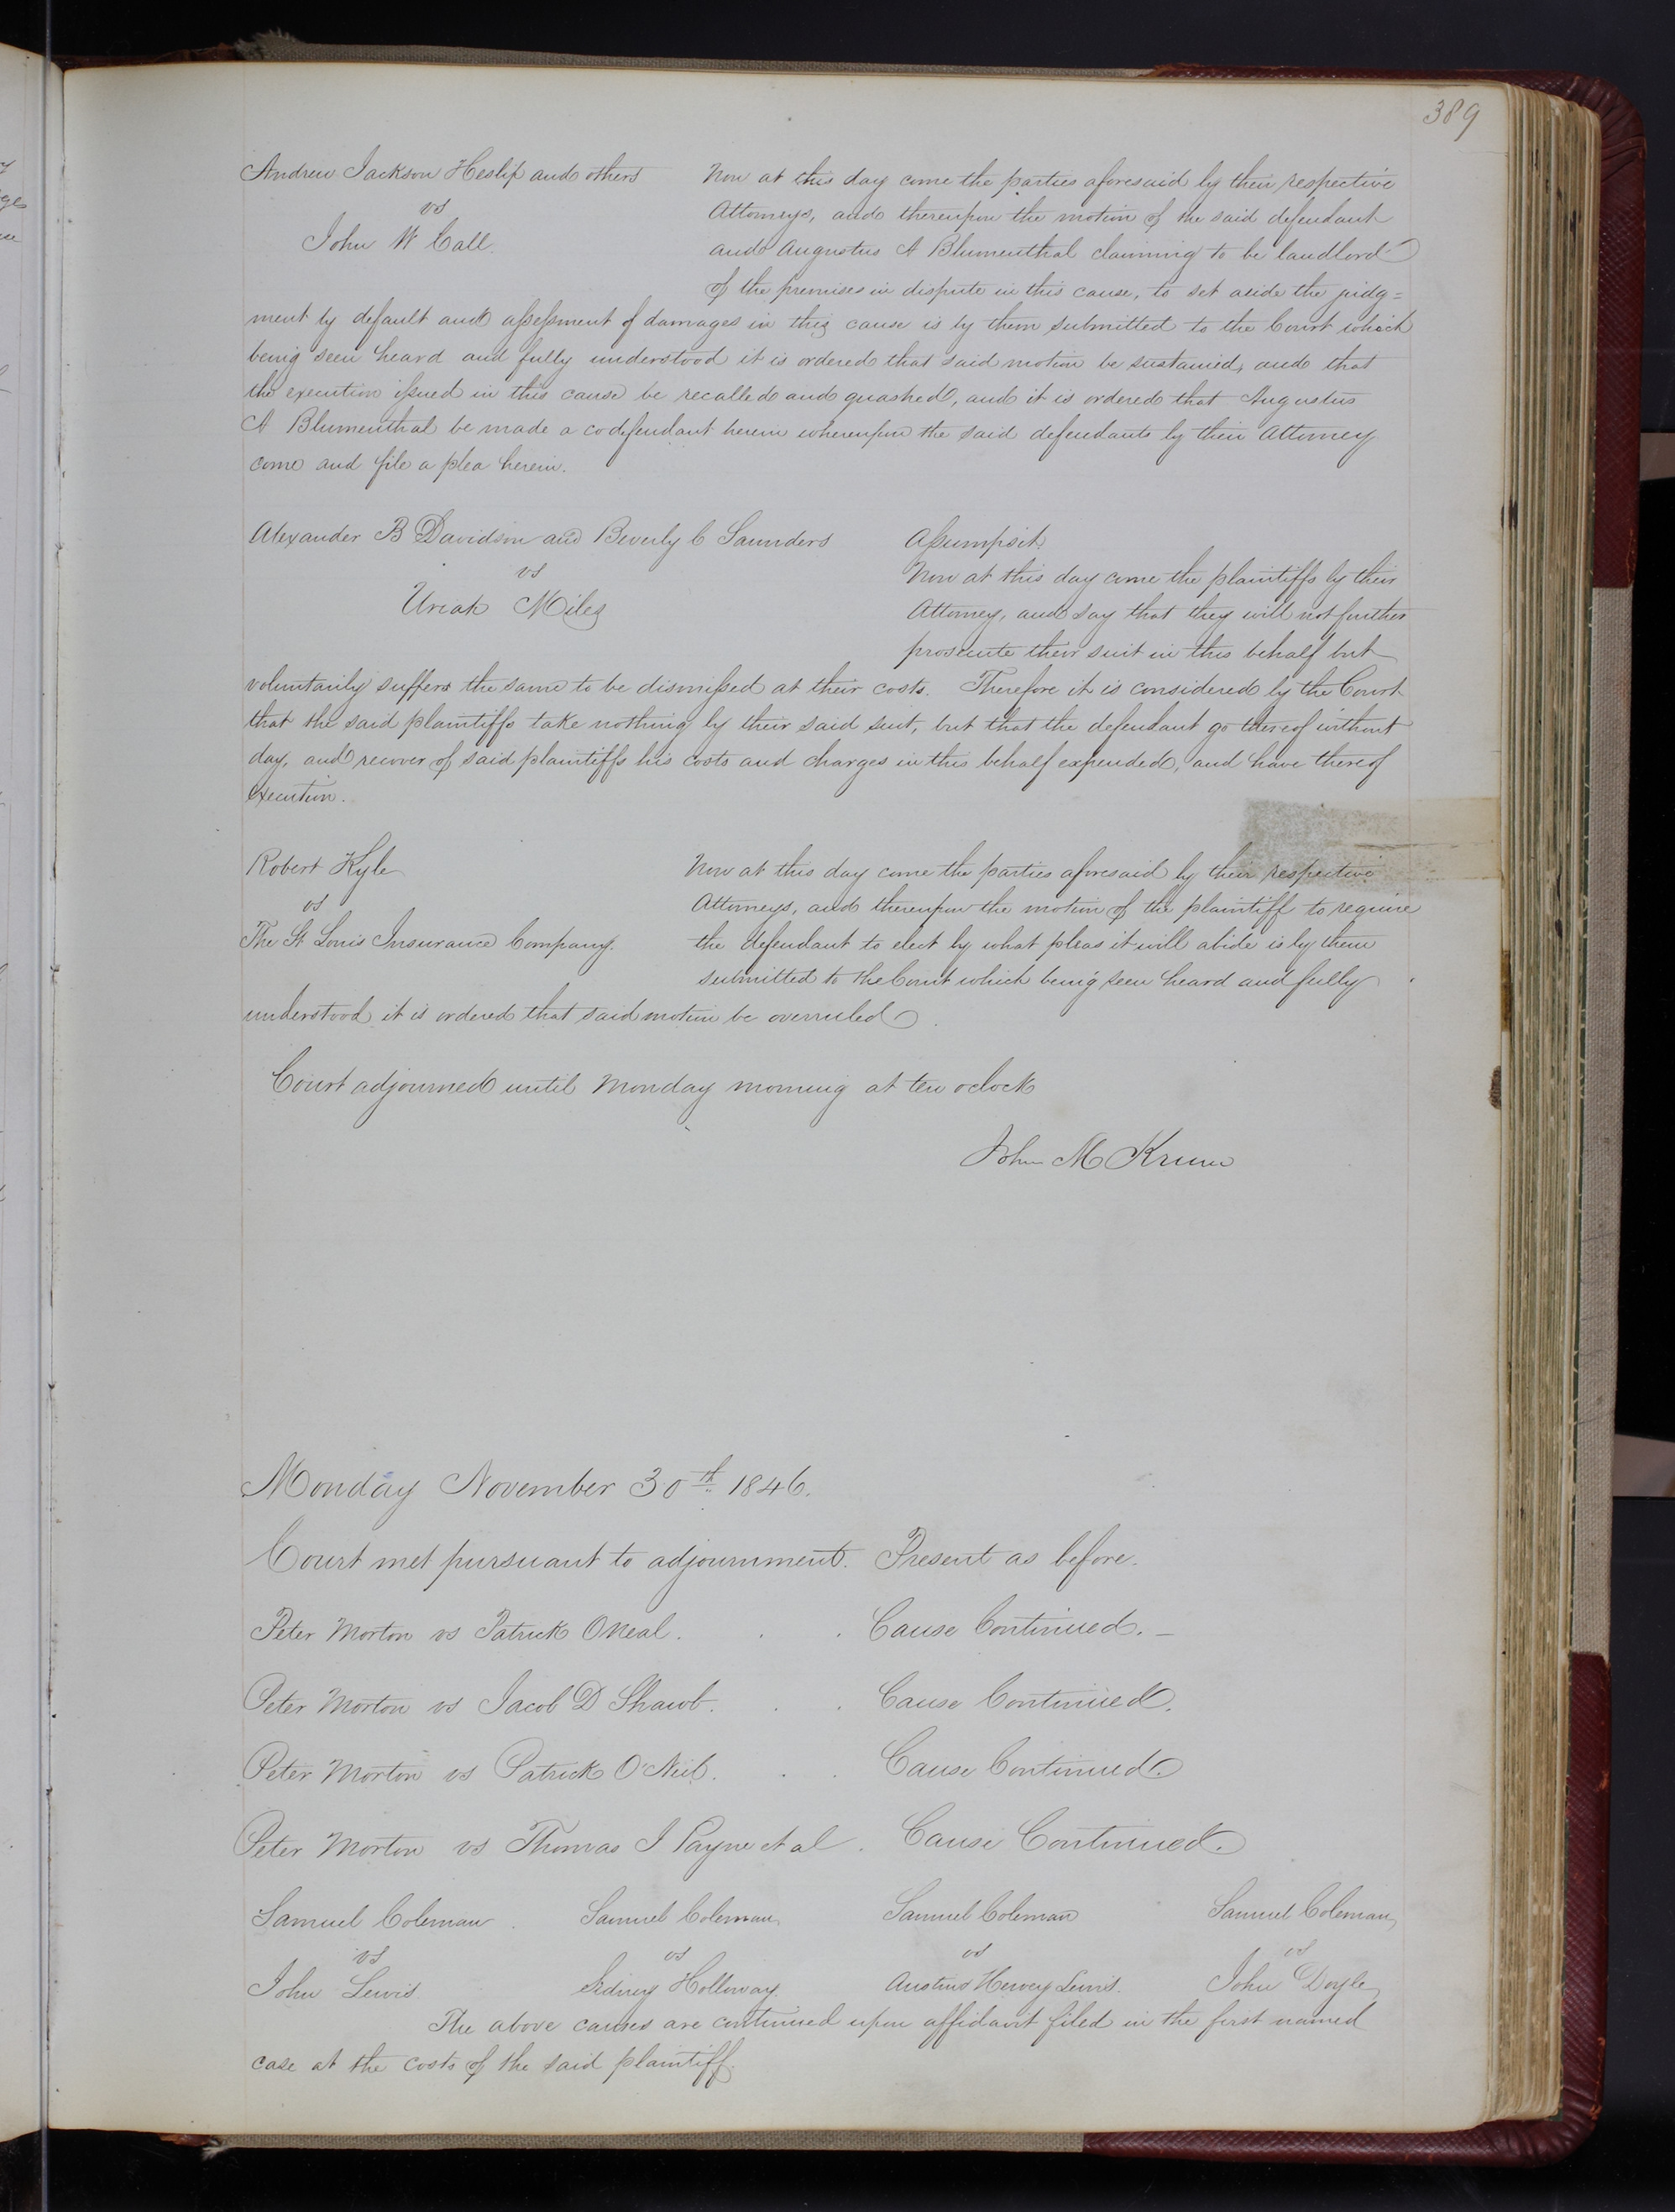 389
Andrew Jackson Heslip and others
vs
John W Call.
Now at this day come the parties aforesaid by their respective
Attorneys, and thereupon the motion of the said defendant
and Augustus A Blumenthal claiming to be landlord
of the premises in dispute in this cause, to set aside the judg=
ment by default and assessment of damages in this cause is by them submitted to the Court which
being seen heard and fully understood it is ordered that said motion be sustained, and that
the execution issued in this cause be recalled and quashed, and it is ordered that Augustus
A Blumenthal be made a codefendant herein whereupon the said defendants by their Attorney
come and file a plea herein.
Alexander B Davidson and Beverly C Saunders
vs
Uriah Miles
Assumpsit.
Now at this day come the plaintiffs by their
Attorney, and say that they will not further
prosecute their suit in this behalf but
voluntarily suffers the same to be dismissed at their costs. Therefore it is considered by the Court
that the said plaintiffs take nothing by their said suit, but that the defendant go thereof without
day, and recover of said plaintiffs his costs and charges in this behalf expended, and have thereof
execution.
Robert Kyle
vs
The St Louis Insurance Company.
Now at this day come the parties aforesaid by their respective
Attorneys, and thereupon the motion of the plaintiff to require
the defendant to elect by what pleas it will abide is by them
submitted to the Court which being seen heard and fully
understood it is ordered that said motion be overruled.
Court adjourned until Monday morning at ten oclock
John M Krum
Monday November 30th 1846.
Court met pursuant to adjournment. Present as before.
Peter Morton vs Patrick ONeal. . . Cause Continued. —
Peter Morton vs Jacob D Shawb. . . Cause Continued.
Peter Morton vs Patrick O'Neil. . . Cause Continued.
Peter Morton vs Thomas J Payne et al. Cause Continued.
Samuel Coleman Samuel Coleman Samuel Coleman Samuel Coleman
vs vs vs vs
John Lewis Sidney Holloway. Austins Hervey Lewis. John Doyle
The above causes are continued upon affidavit filed in the first named
case at the costs of the said plaintiff.